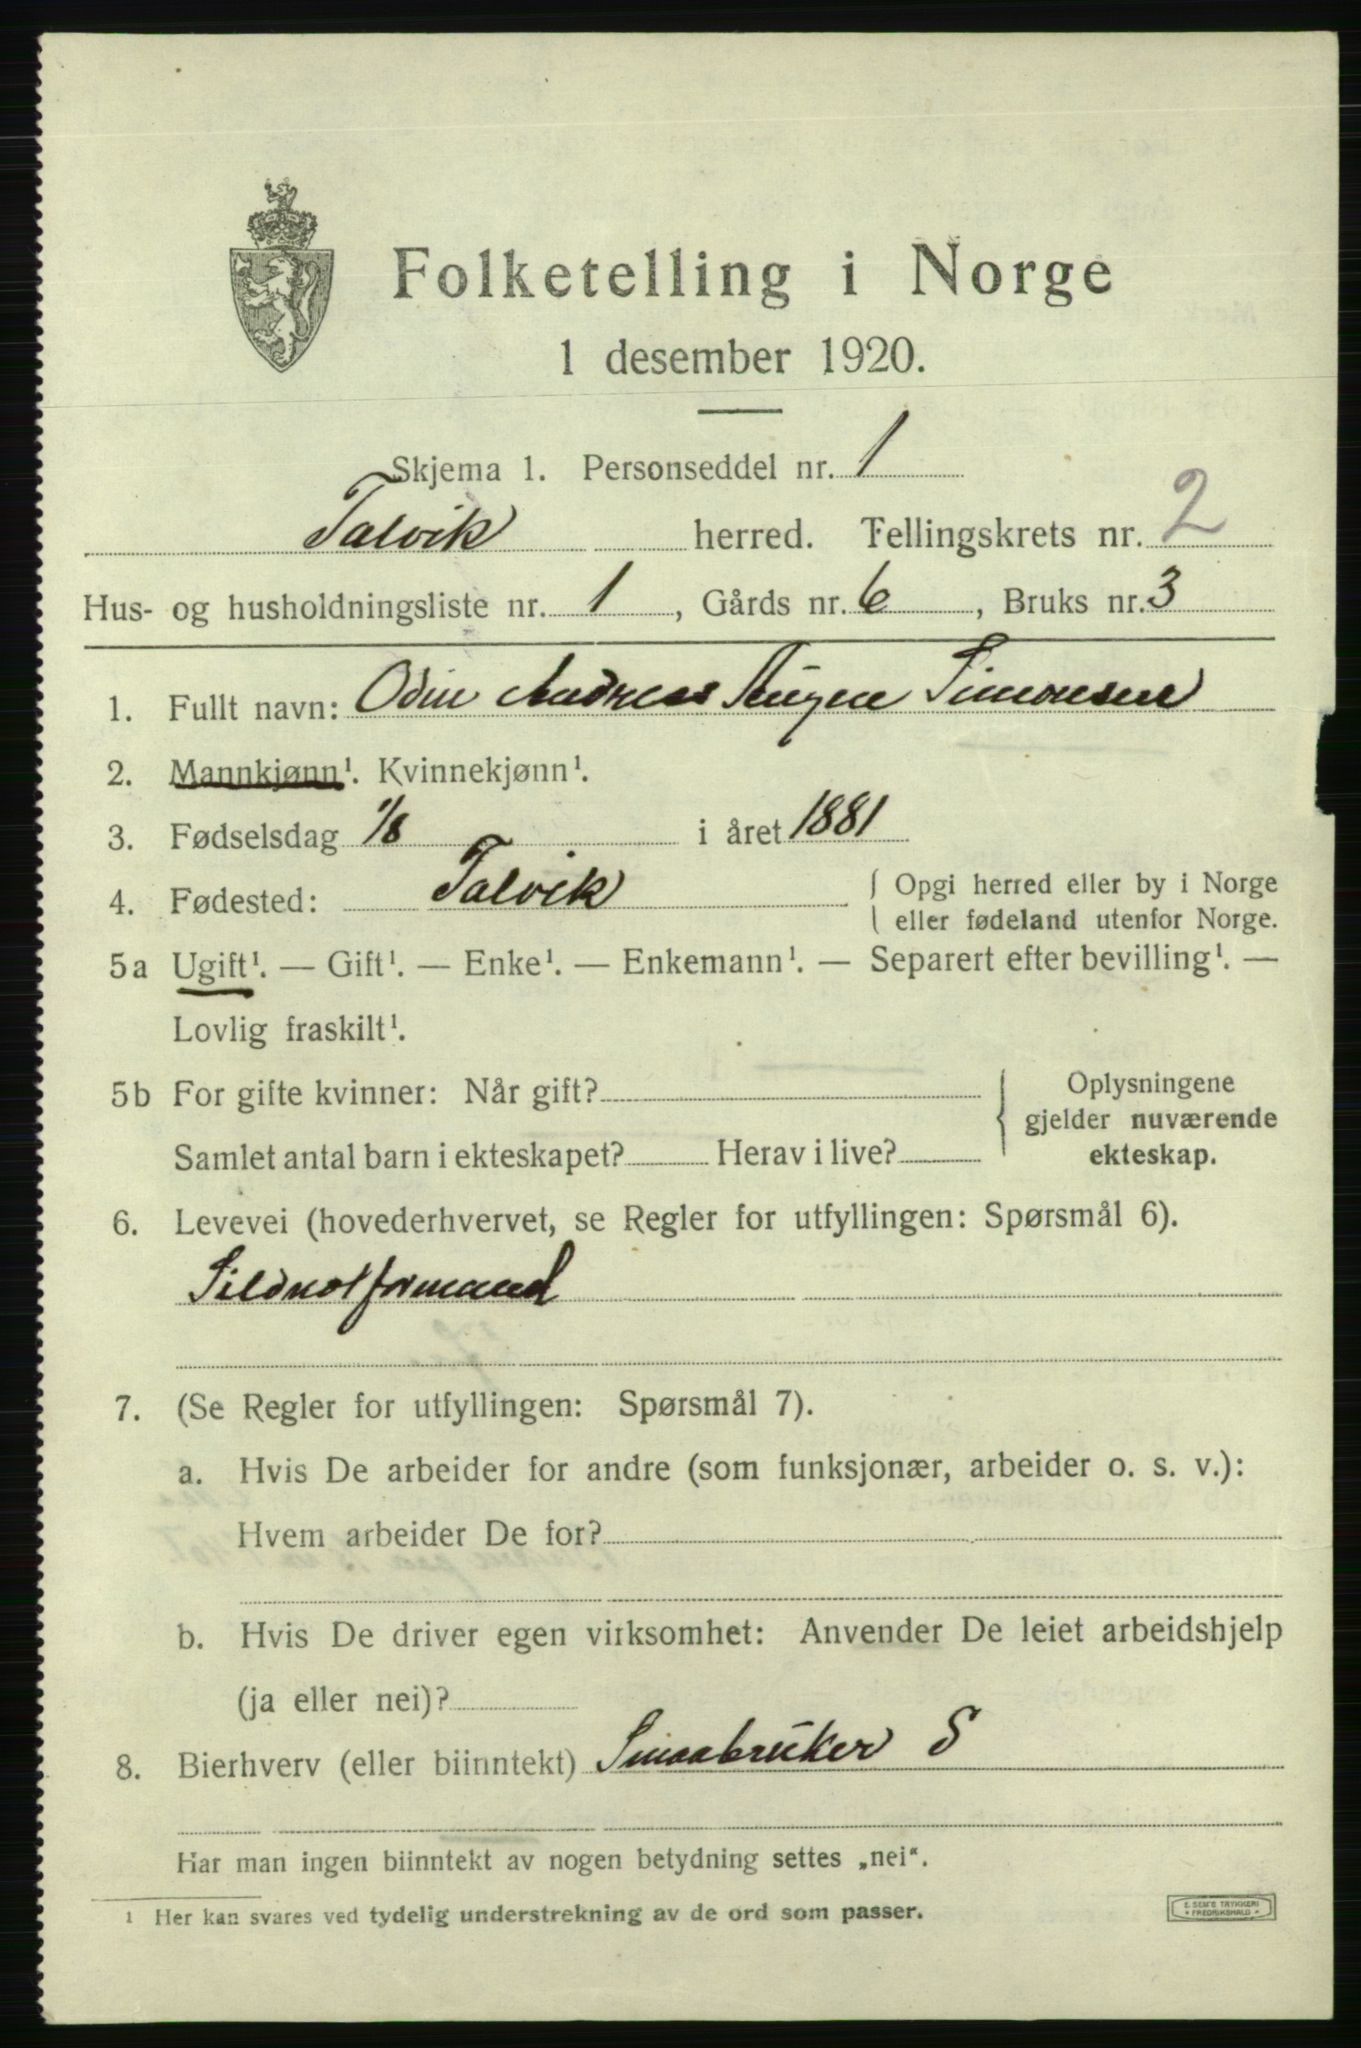 Folketelling i Norge
1 desember 1920.
Skjema 1. Personseddel nr. 1
Talvik herred. Tellingskrets nr. 2
Hus- og husholdningsliste nr. 1, Gårds nr. 6, Bruks nr. 3
1. Fullt navn: Odin Andreas Simonsen
2. Mannkjønn¹. Kvinnekjønn¹.
3. Fødselsdag 1/8 i året 1881
4. Fødested: Talvik { Opgi herred eller by i Norge
eller fødeland utenfor Norge.
5a Ugift¹. — Gift¹. — Enke¹. — Enkemann¹. — Separert efter bevilling¹. —
Lovlig fraskilt¹.
5b For gifte kvinner: Når gift? { Oplysningene
gjelder nuværende
Samlet antal barn i ekteskapet? Herav i live? ekteskap.
6. Levevei (hovederhvervet, se Regler for utfyllingen: Spørsmål 6).
Sildnotformand
7. (Se Regler for utfyllingen: Spørsmål 7).
a. Hvis De arbeider for andre (som funksjonær, arbeider o. s. v.):
Hvem arbeider De for?
b. Hvis De driver egen virksomhet: Anvender De leiet arbeidshjelp
(ja eller nei)?
8. Bierhverv (eller biinntekt) Smaabruker S
Har man ingen biinntekt av nogen betydning settes „nei“.
1 Her kan svares ved tydelig understrekning av de ord som passer.
E. SEM'S TRYKKERI
* FREDRIKSHALD *